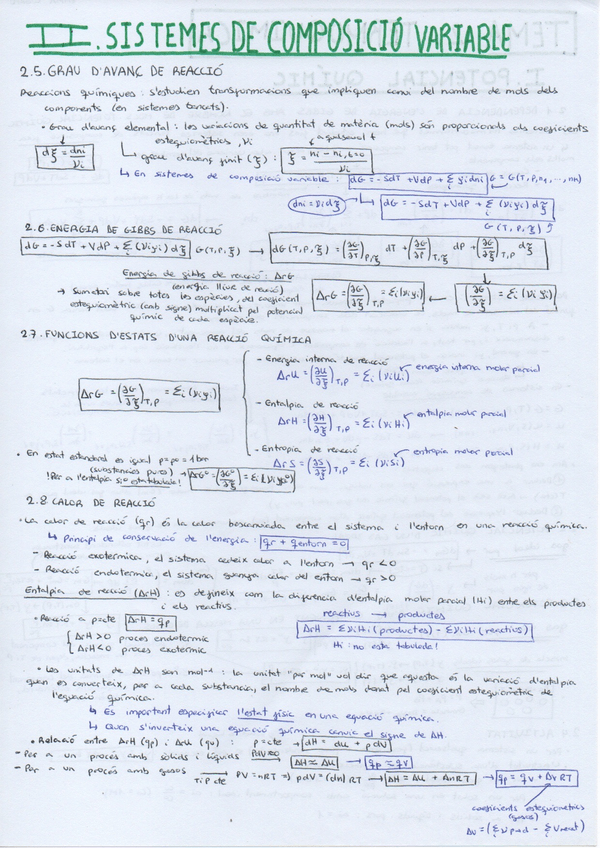 II. SISTEMES DE COMPOSICIÓ VARIABLE
2.5. GRAU D'AVANÇ DE REACCIÓ
Reaccions químiques: s'estudien transformacions que impliquen canvi del nombre de mols dels
components (en sistemes tancats).
• Grau d'avanç elemental: les variacions de quantitat de matèria (mols) són proporcionals als coeficients
estequiomètrics, νi
dξ = dni/νi
↳ grau d'avanç finit (ξ): ξ = (ni − ni,t=0)/νi
a qualsevol t
↳ En sistemes de composició variable: dG = -SdT + VdP + Σi μidni G = G(T,P,n1,...,nn)
dni = νidξ → dG = -SdT + VdP + Σi (νiμi) dξ
G(T,P,ξ)
2.6. ENERGIA DE GIBBS DE REACCIÓ
dG = -SdT + VdP + Σi (νiμi) dξ G(T,P,ξ) → dG(T,P,ξ) = (∂G/∂T)P,ξ dT + (∂G/∂P)T,ξ dP + (∂G/∂ξ)T,P dξ
Energia de gibbs de reacció: ΔrG
(energia lliure de reacció)
→ Sumatori sobre totes les espècies, del coeficient
estequiomètric (amb signe) multiplicat pel potencial
químic de cada espècie.
ΔrG = (∂G/∂ξ)T,P = Σi(νiμi) ← (∂G/∂ξ) = Σi (νiμi)
2.7. FUNCIONS D'ESTATS D'UNA REACCIÓ QUÍMICA
- Energia interna de reacció
ΔrU = (∂U/∂ξ)T,P = Σi (νiUi) energia interna molar parcial
ΔrG = (∂G/∂ξ)T,P = Σi (νiμi)
- Entalpia de reacció
ΔrH = (∂H/∂ξ)T,P = Σi (νiHi) entalpia molar parcial
- Entropia de reacció
ΔrS = (∂S/∂ξ)T,P = Σi (νiSi) entropia molar parcial
• En estat estandard és igual p = pº = 1 bar
(substàncies pures) → ΔrGº = (∂Gº/∂ξ) = Σi(νiμiº)
!Per a l'entalpia si està tabulada!
2.8 CALOR DE REACCIÓ
• La calor de reacció (qr) és la calor bescanviada entre el sistema i l'entorn en una reacció química.
↳ Principi de conservació de l'energia: qr + qentorn = 0
- Reacció exotèrmica, el sistema cedeix calor a l'entorn → qr < 0
- Reacció endotèrmica, el sistema guanya calor del entorn → qr > 0
Entalpia de reacció (ΔrH): es defineix com la diferència d'entalpia molar parcial (Hi) entre els productes
i els reactius.
reactius → productes
• Reacció a p=cte ΔrH = qp
ΔrH = ΣνiHi (productes) − ΣνiHi (reactius)
ΔrH > 0 procés endotermic
ΔrH < 0 procés exotermic
Hi: no esta tabulada!
• Les unitats de ΔrH son mol⁻¹: la unitat "per mol" vol dir que aquesta és la variació d'entalpia
quan es converteix, per a cada substancia, el nombre de mols donat pel coeficient estequiomètric de
l'equació química.
↳ És important especificar l'estat físic en una equació química.
↳ Quan s'inverteix una equació química canvia el signe de ΔH.
• Relació entre ΔrH (qp) i ΔrU (qv): p=cte → dH = dU + pdV
- Per a un procés amb sòlids i líquids PdV≈0 → ΔH ≈ ΔU → qp ≈ qv
- Per a un procés amb gasos T i P cte → PV = nRT => pdV = (dn)RT → ΔH = ΔU + ΔnRT → qp = qv + ΔνRT
coeficients estequiometrics
(gasos)
Δν = (Σi νprod − Σi νreact)